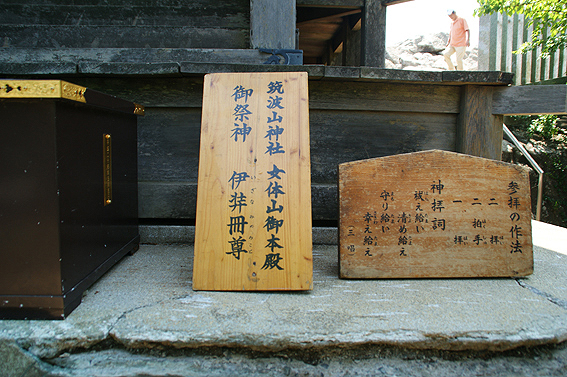 筑波山神社 女体山御本殿
御祭神 伊弉冊尊
いざなみのみこと
参拝の作法
二拝
二拍手
一拝
神拝詞
祓え給い
清め給え
守り給い
幸え給え
三唱